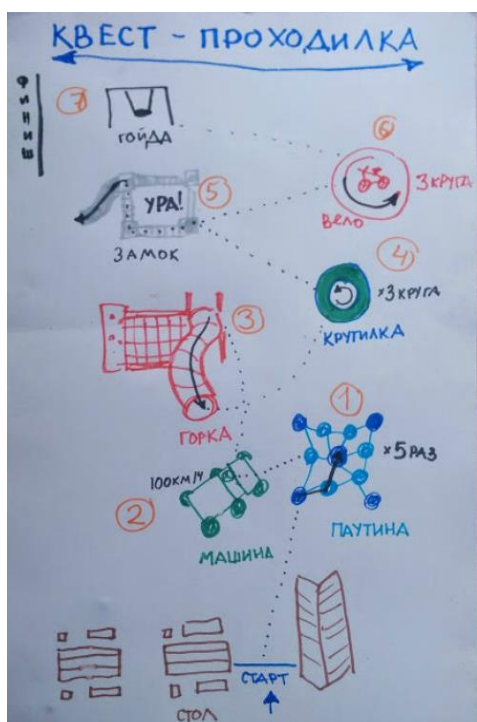 КВЕСТ - ПРОХОДИЛКА
ФИНИШ
7
ГОЙДА
6
3 КРУГА
ВЕЛО
5
УРА!
ЗАМОК
4
×3 КРУГА
КРУТИЛКА
3
ГОРКА
1
×5 РАЗ
ПАУТИНА
100КМ/Ч
2
МАШИНА
СТАРТ
СТОЛ